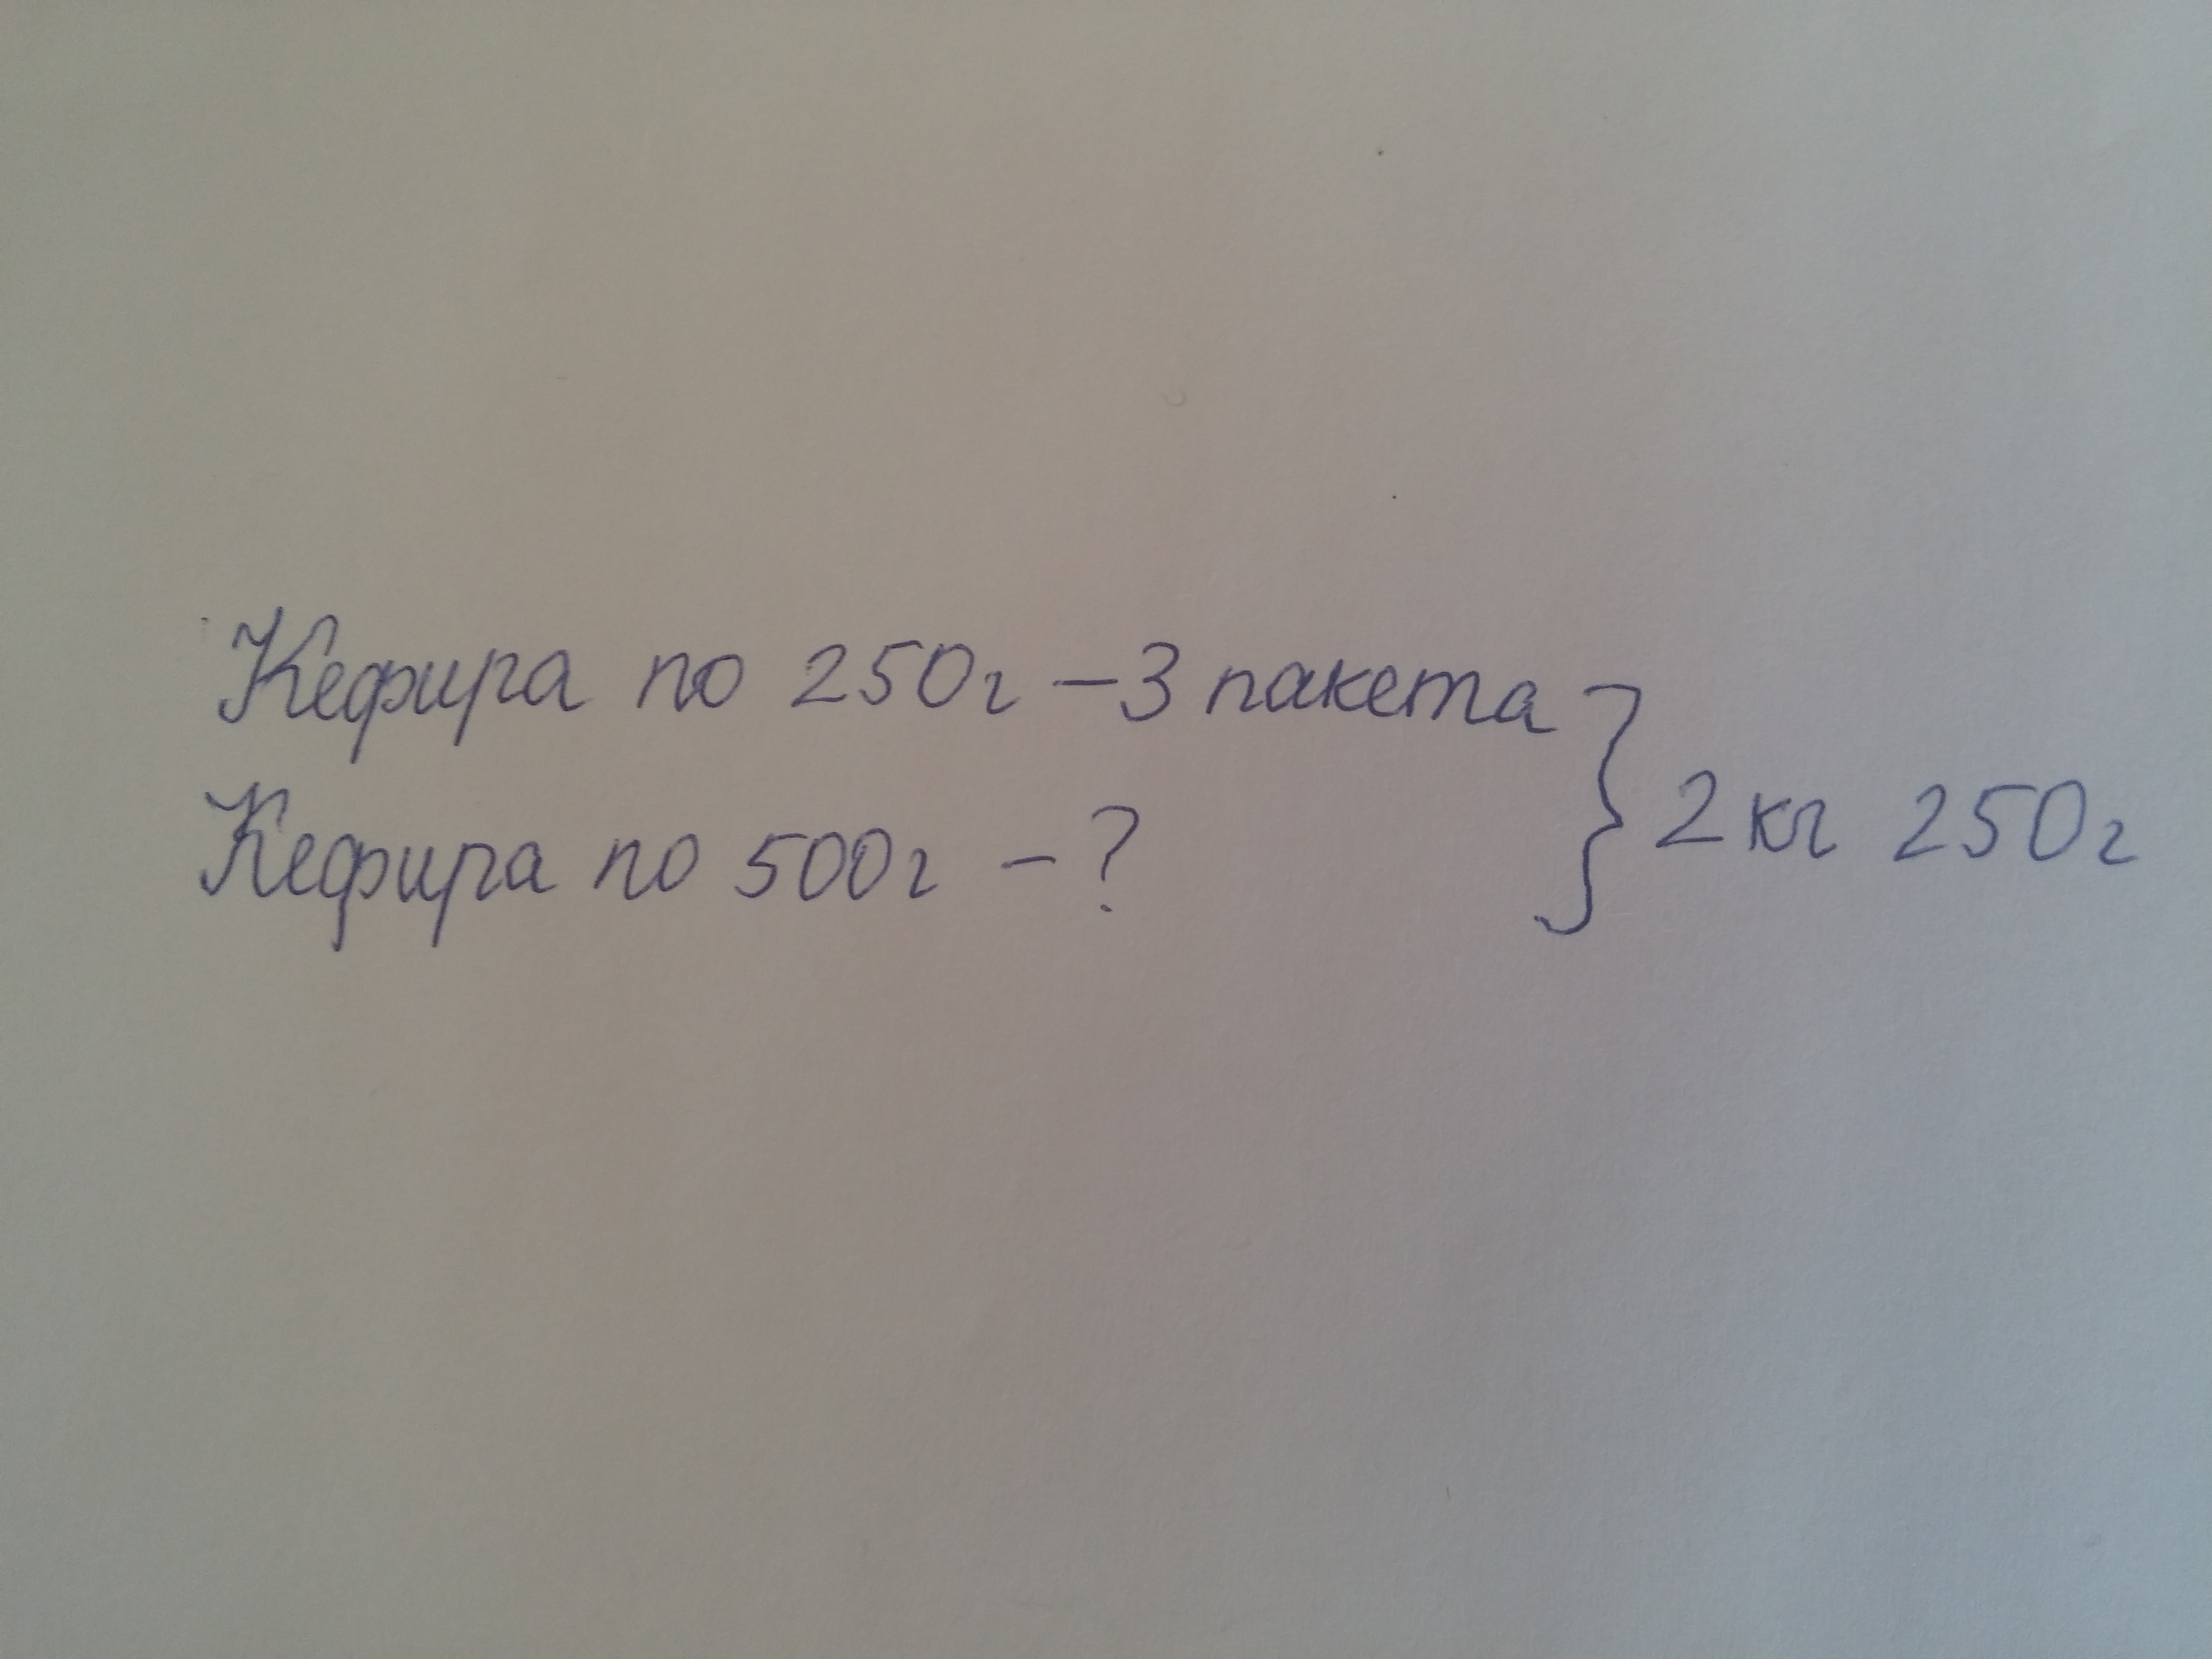 Кефира по 250г – 3 пакета
Кефира по 500г – ?
} 2 кг 250г